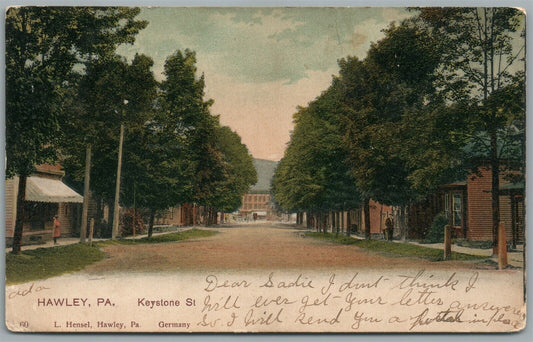 Dear Sadie I dont think I
HAWLEY, PA. Keystone St
will ever get your letter answered
60 L. Hensel, Hawley, Pa. Germany
So I will send you a postal in place
ada